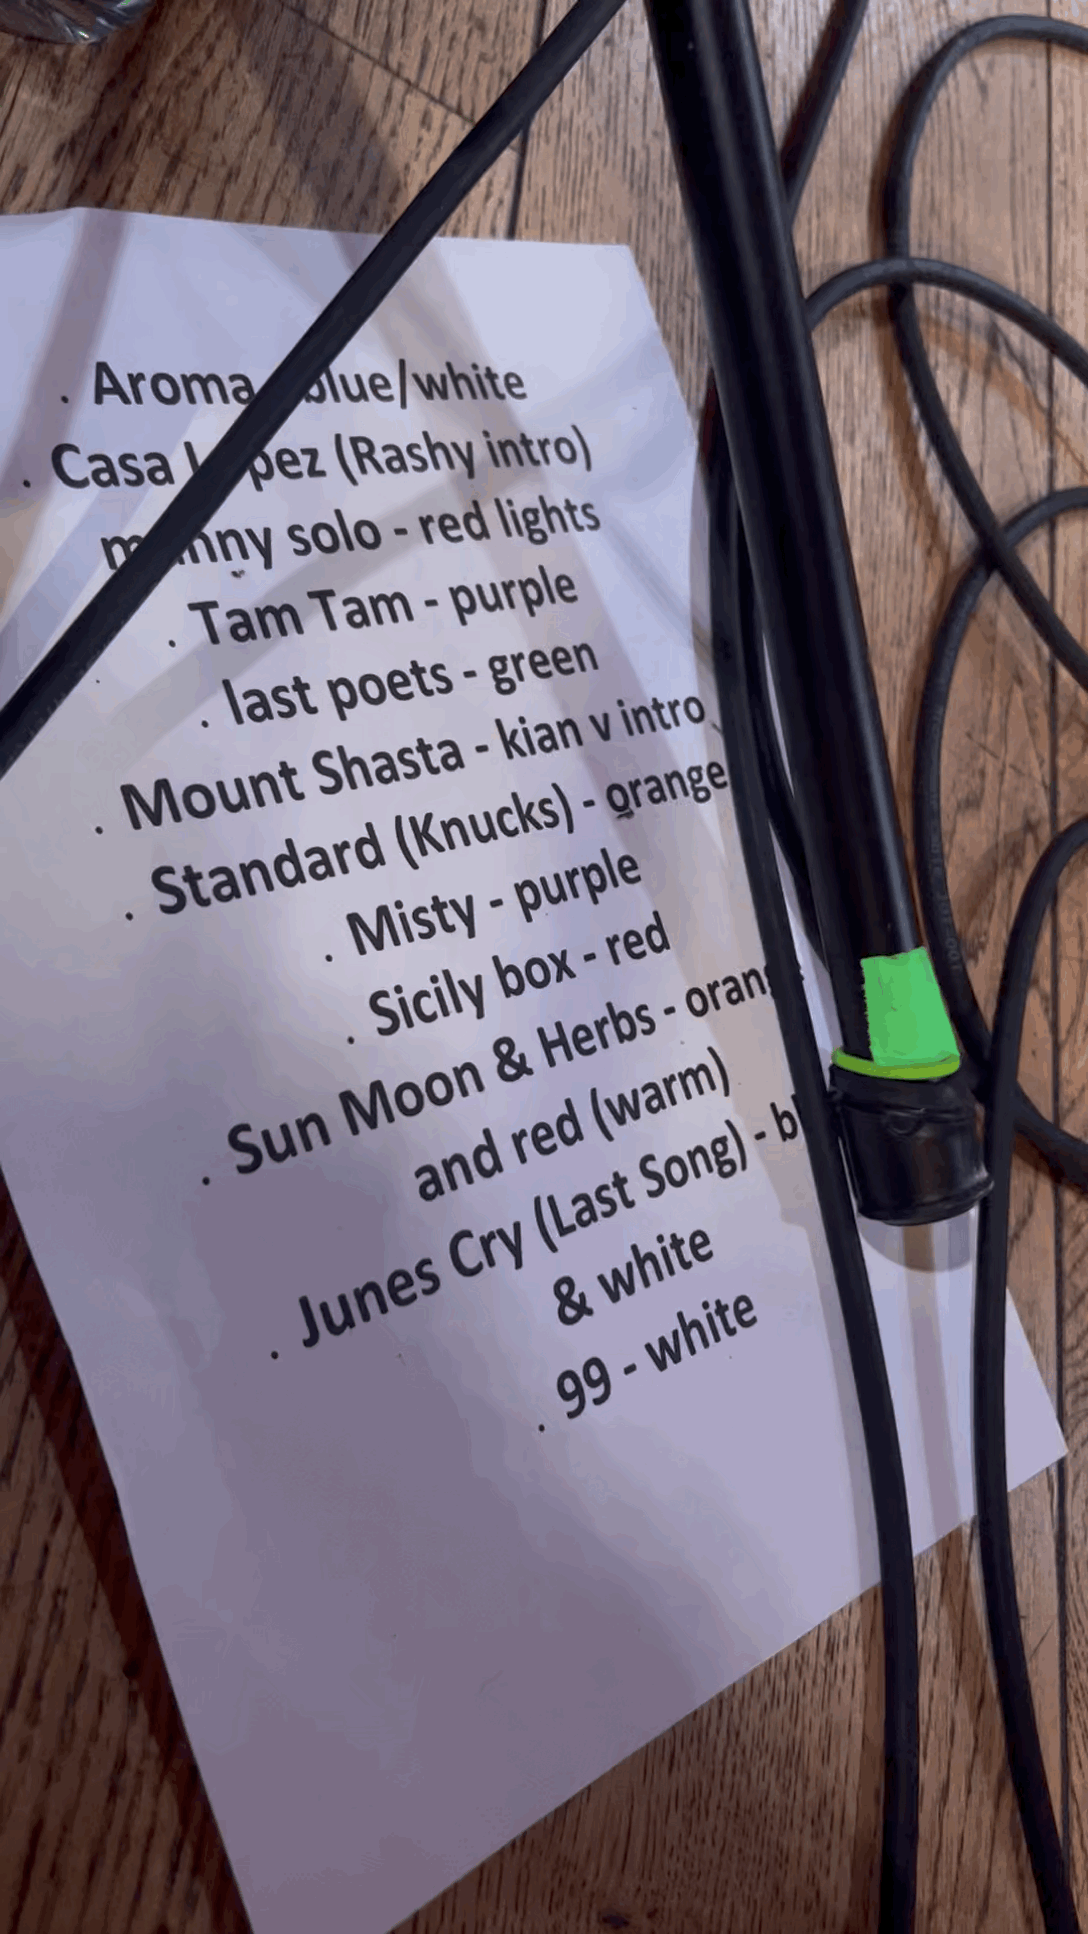 . Aroma blue/white
. Casa pez (Rashy intro)
solo - red lights
. Tam Tam - purple
. last poets - green
. Mount Shasta - kian v intro
. Standard (Knucks) - orange
. Misty - purple
. Sicily box - red
. Sun Moon & Herbs - orang
and red (warm)
. Junes Cry (Last Song) - bl
& white
. 99 - white